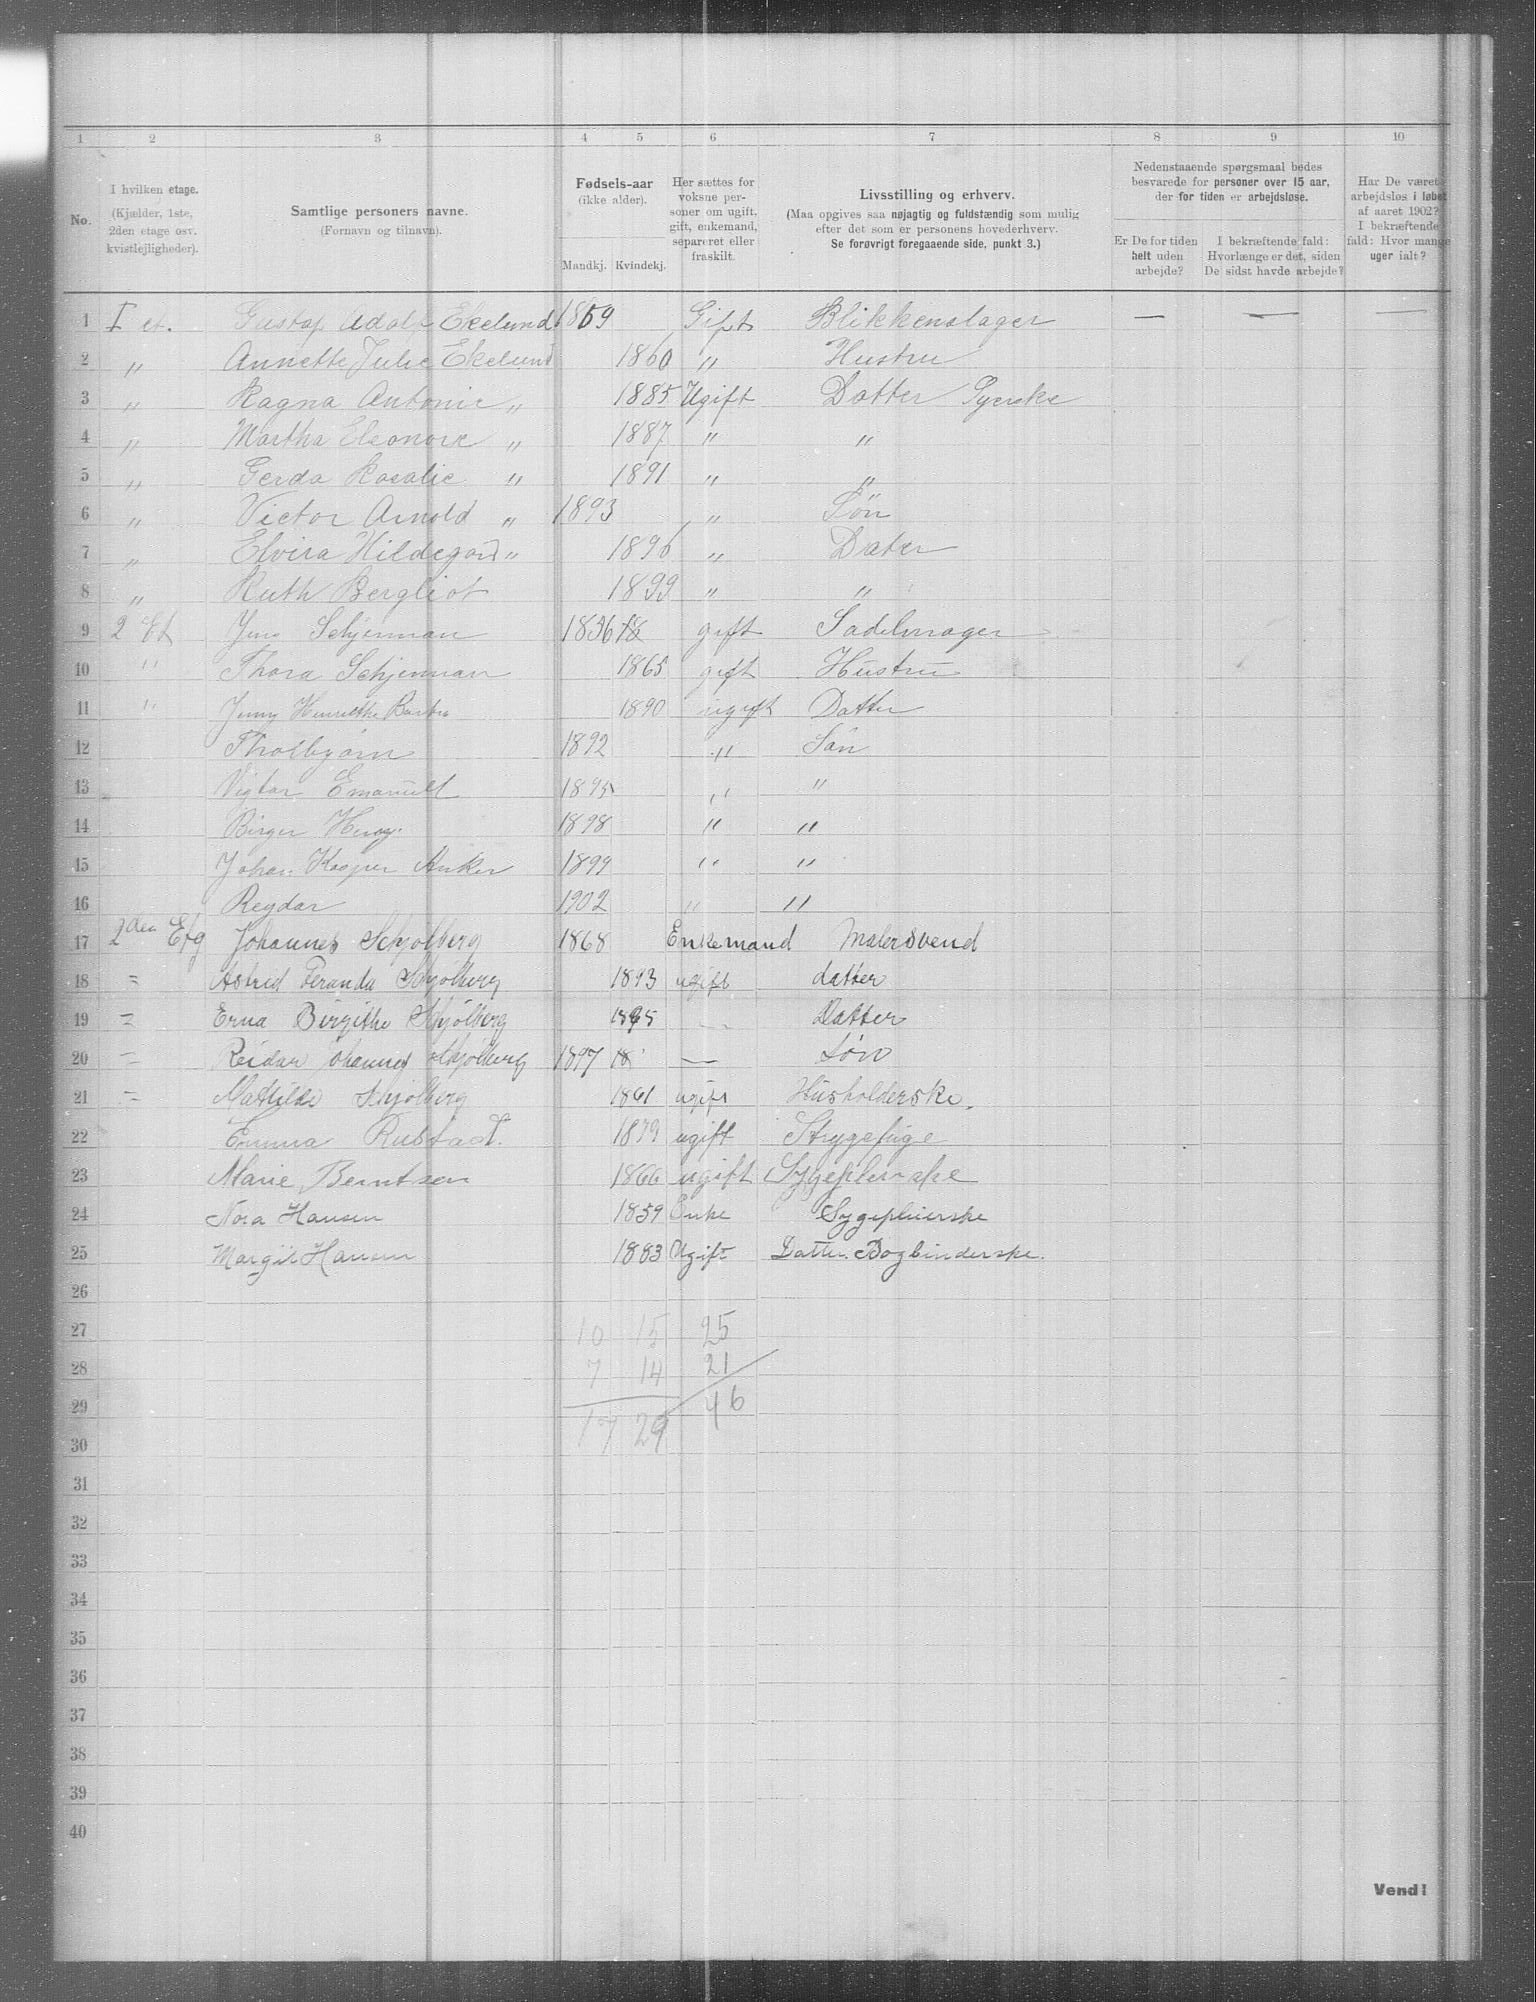 1 2 3 4 5 6 7 8 9 10
No.
I hvilken etage.
(Kjælder, 1ste,
2den etage osv.
kvistlejligheder).
Samtlige personers navne.
(Fornavn og tilnavn).
Fødsels-aar
(ikke alder).
Mandkj. Kvindekj.
Her sættes for
voksne per-
soner om ugift,
gift, enkemand,
separeret eller
fraskilt.
Livsstilling og erhverv.
(Maa opgives saa nøjagtig og fuldstændig som mulig
efter det som er personens hovederhverv.
Se forøvrigt foregaaende side, punkt 3.)
Nedenstaaende spørgsmaal bedes
besvarede for personer over 15 aar,
der for tiden er arbejdsløse.
Er De for tiden
helt uden
arbejde?
I bekræftende fald:
Hvorlænge er det, siden
De sidst havde arbejde?
Har De været
arbejdsløs i løbet
af aaret 1902?
I bekræftende
fald: Hvor mange
uger ialt?
1 I et. Gustaf Adolf Ekelund 1859 Gift Blikkenslager — — —
2 „ Annette Julie Ekelund 1860 „ Hustru
3 „ Ragna Antonie „ 1885 Ugift Datter Syerske
4 „ Martha Eleonore „ 1887 „ „
5 „ Gerda Rosalie „ 1891 „ „
6 „ Victor Arnold „ 1893 „ Søn
7 „ Elvira Hildegard „ 1896 „ Dater
8 „ Ruth Bergliot 1899 „ „
9 2 Et Jens Schjerman 1836 18 gift Sadelmager
10 " Thora Schjerman 1865 gift Hustru
11 " Jenny Henriette 1890 ugift Datter
12 Thorbjørn 1892 " Søn
13 Vigtor Emanuell 1895 " "
14 Birger 1898 " "
15 Johan Kasper Anker 1899 " "
16 Reydar 1902 " "
17 2den Etg Johannes Schjølberg 1868 Enkemand Malersvend
18 = Astrid Feranda Schjølberg 1893 ugift datter
19 = Erna Birgithe Schjølberg 1895 — Datter
20 = Reidar Johannes Schjølberg 1897 18 — Søn
21 = Mathilde Schjølberg 1861 ugift Husholderske.
22 Emma Rustad. 1879 ugift Strygepige
23 Marie Berntsen 1866 ugift Sygepleierske
24 Nora Hansen 1859 Enke Sygepleierske
25 Margit Hansen 1883 Ugift Datter. Bogbinderske.
26
27 10 15 25
28 7 14 21
29 17 29 46
30
31
32
33
34
35
36
37
38
39
40
Vend!